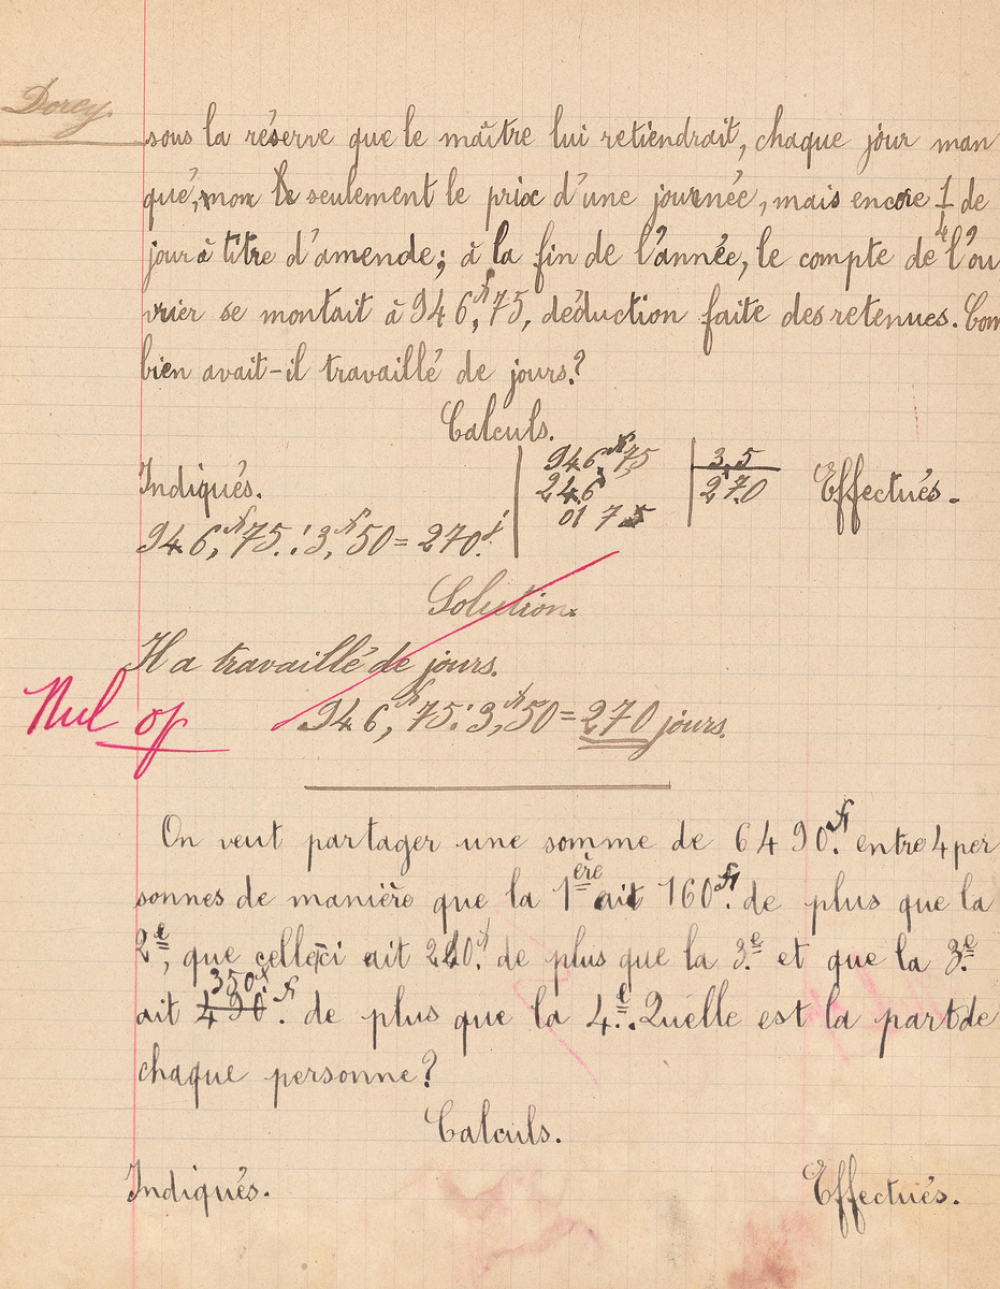 Dorcy
sous la réserve que le maître lui retiendrait, chaque jour man
qué, non seulement le prix d'une journée, mais encore 1/4 de
jour à titre d'amende; à la fin de l'année, le compte de l'ou
vrier se montait à 946,fr75, déduction faite des retenues. Com
bien avait-il travaillé de jours?
Calculs.
Indiqués.
946,fr75 : 3,fr50 = 270.j
946,fr75 | 3,5
246 | 270
01 75
Effectués.
Solution.
Il a travaillé de jours.
946,fr75 : 3,fr50 = 270 jours.
Nul
On veut partager une somme de 6490.fr entre 4 per
sonnes de manière que la 1ère ait 160.fr de plus que la
2e, que celle ci ait 240.f de plus que la 3.e et que la 3.e
350f
ait 490.fr de plus que la 4.e. Quelle est la part de
chaque personne?
Calculs.
Indiqués.
Effectués.